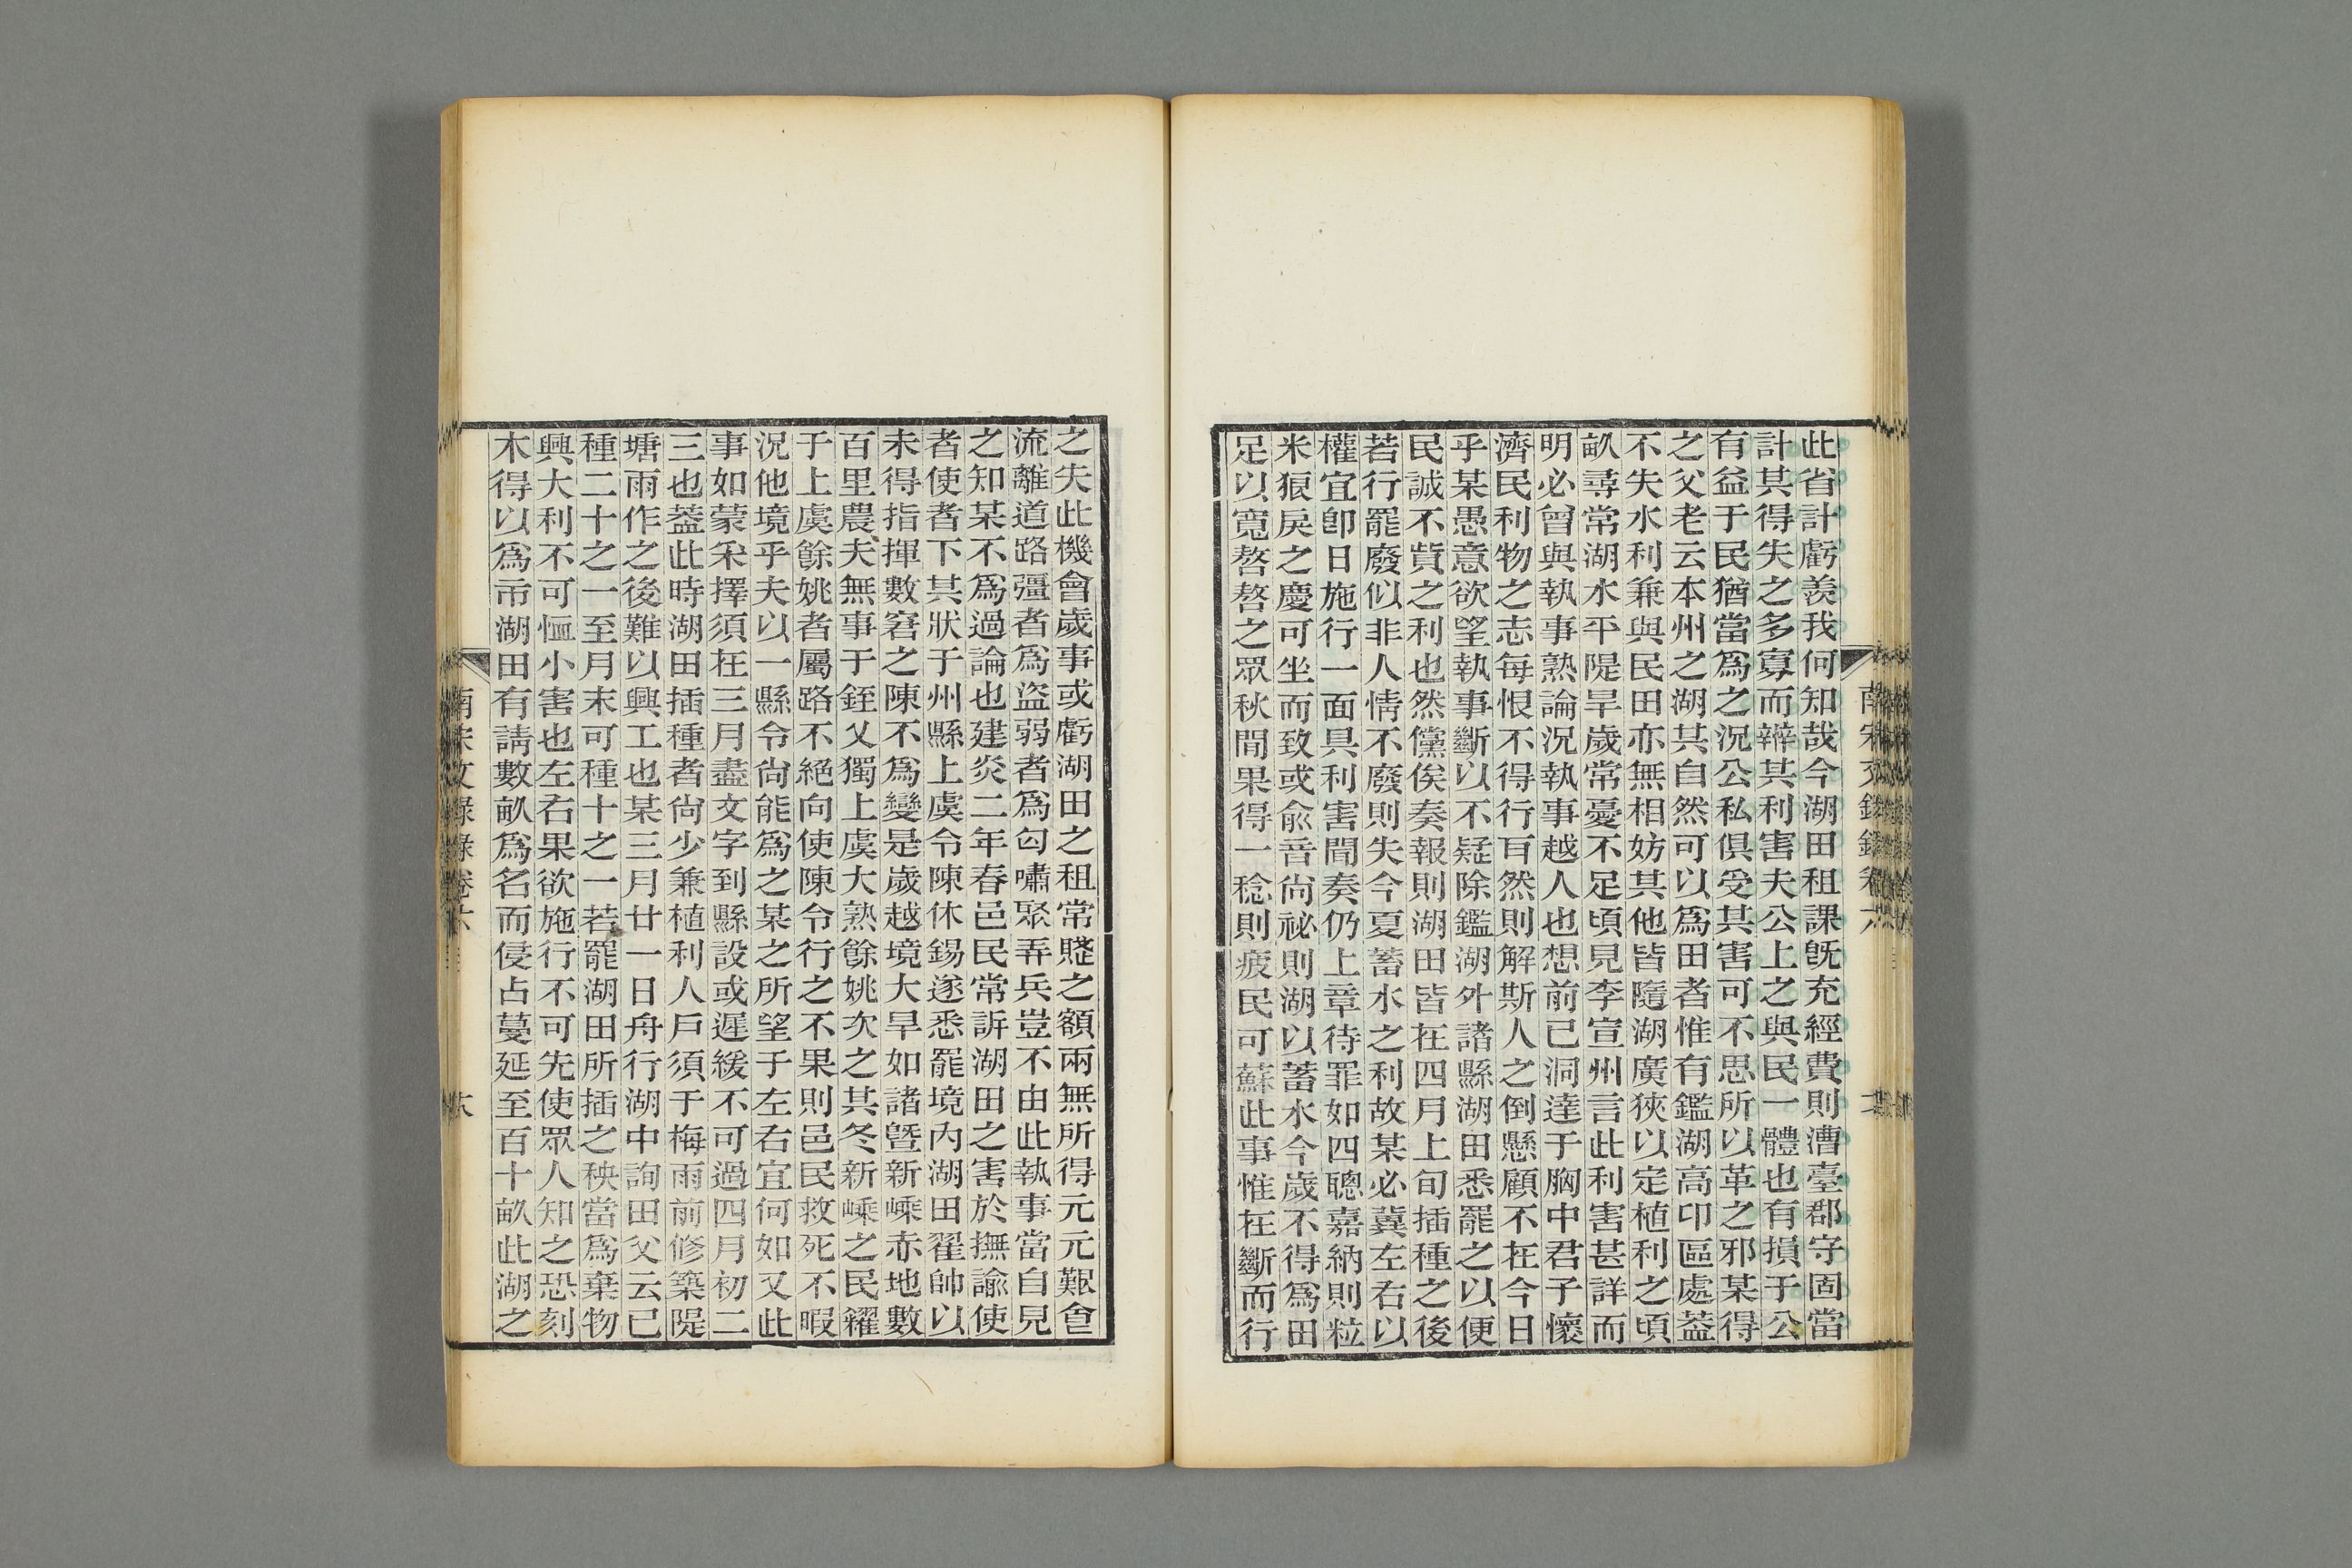 此省計虧羨我何知哉今湖田租課旣充經費則漕臺郡守固當
計其得失之多寡而辨其利害夫公上之與民一體也有損于公
有益于民猶當爲之況公私俱受其害可不思所以革之邪某得
之父老云本州之湖其自然可以爲田者惟有鑑湖高卬區處葢
不失水利兼與民田亦無相妨其他皆隨湖廣狹以定植利之頃
畝尋常湖水平隄旱歲常憂不足頃見李宣州言此利害甚詳而
明必曾與執事熟論況執事越人也想前已洞達于胸中君子懷
濟民利物之志每恨不得行耳然則解斯人之倒懸顧不在今日
乎某愚意欲望執事斷以不疑除鑑湖外諸縣湖田悉罷之以便
民誠不貲之利也然儻俟奏報則湖田皆在四月上旬插種之後
若行罷廢似非人情不廢則失今夏蓄水之利故某必冀左右以
權宜卽日施行一面具利害聞奏仍上章待罪如四聰嘉納則粒
米狼戾之慶可坐而致或兪音尙祕則湖以蓄水今歲不得爲田
足以寬嗸嗸之眾秋閒果得一稔則疲民可蘇此事惟在斷而行
之失此機會歲事或虧湖田之租常賤之額兩無所得元元艱食
流離道路彊者爲盜弱者爲匄嘯聚弄兵豈不由此執事當自見
之知某不爲過論也建炎二年春邑民常訴湖田之害於撫諭使
者使者下其狀于州縣上虞令陳休錫遂悉罷境內湖田翟帥以
未得指揮數窘之陳不爲變是歲越境大旱如諸曁新嵊赤地數
百里農夫無事于銍乂獨上虞大熟餘姚次之其冬新嵊之民糴
于上虞餘姚者屬路不絕向使陳令行之不果則邑民救死不暇
況他境乎夫以一縣令尙能爲之某之所望于左右宜何如又此
事如蒙采擇須在三月盡文字到縣設或遲緩不可過四月初二
三也葢此時湖田插種者尙少兼植利人戶須于梅雨前修築隄
塘雨作之後難以興工也某三月廿一日舟行湖中詢田父云已
種二十之一至月末可種十之一若罷湖田所插之秧當爲棄物
興大利不可恤小害也左右果欲施行不可先使眾人知之恐刻
木得以爲市湖田有請數畝爲名而侵占蔓延至百十畝此湖之